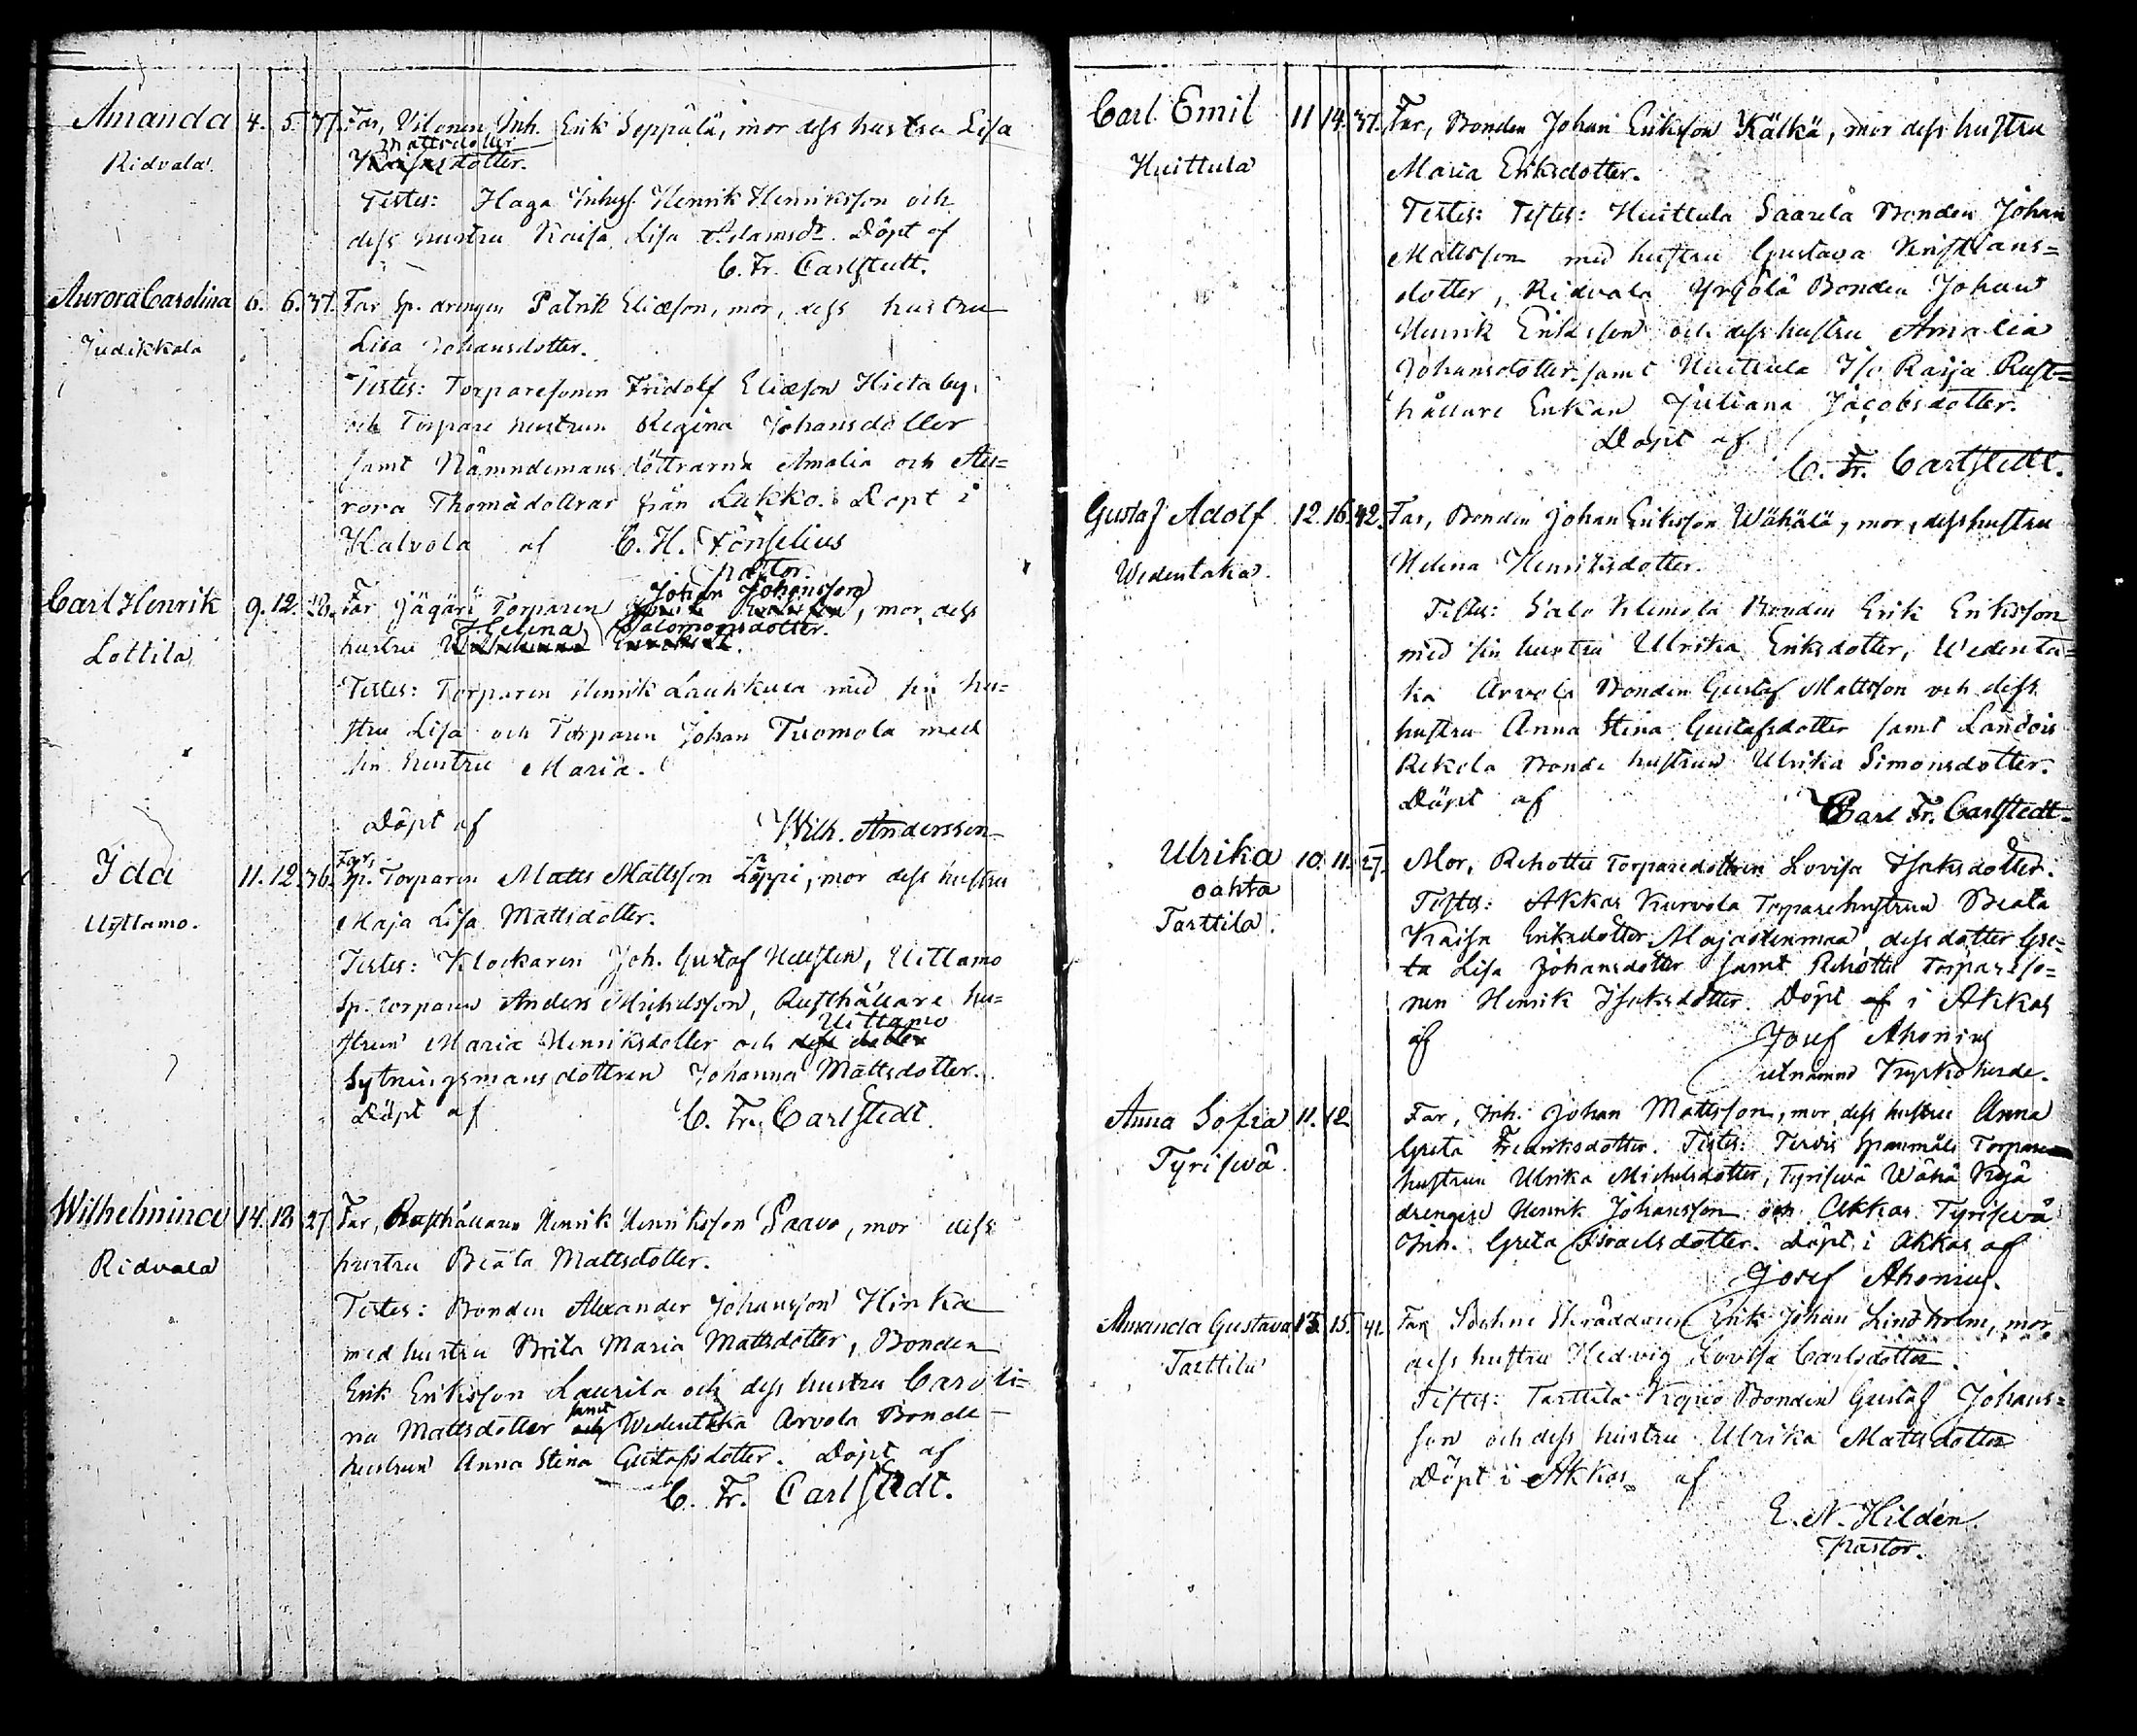 Amanda 4. 5. 37. Far, Vilonen Inh. Erik Seppälä, mor dess hustru Lisa
Mattsdotter
Ridvala. Kaisasdotter.
Testes: Haga Inhys. Henrik Henriksson och
dess hustru Kaisa Lisa Adamsdr. Döpt af
C. Fr. Carlstedt.
Aurora Carolina 6. 6. 37. Far Sp. drengen Patrik Eliæson, mor, dess hustru
Judikkala Lisa Johansdotter.
Testes: Torparesonen Fridolf Eliæson Hietaby,
och Torpare hustrun Regina Johansdotter
samt Nämndemans döttrarna Amalia och Au=
rora Thomädottrar från Lukko. Döpt i
Kalvola af C. H. Fonselius
pastor.
Johan Johansson
Carl Henrik 9. 12. 28. Far Jägäri Torparen, mor, dess
Helena Salomonsdotter.
Lottila hustru
Testes: Torparen Henrik Laukkula med sin hu=
stru Lisa och Torparen Johan Tuomola med
sin hustru Maria.
Döpt af Wilh. Andersson
Far,
Ida 11. 12. 36. Sp. Torparen Matts Mattsson Loppi, mor dess hustru
Uittamo. Maja Lisa Mattsdotter.
Testes: Klockaren Joh. Gustaf Hellsten, Uittamo
Sp. torparen Anders Michelsson, Rusthållare hu=
Uittamo
strun Maria Henriksdotter och dess dotter
Sytningsmansdottren Johanna Mattsdotter.
Döpt af C. Fr. Carlstedt.
Wilhelmina 14. 18. 27. Far, Rusthållaren Henrik Henriksson Paavo, mor dess
Ridvala hustru Beata Mattsdotter.
Testes: Bonden Alexander Johansson Hinka
med hustru Brita Maria Mattsdotter, Bonden
Erik Eriksson Laurila och dess hustru Caroli=
samt
na Mattsdotter och Wedentaka Arvola Bonde
hustrun Anna Stina Gustafsdotter. Döpt af
C. Fr. Carlstedt.
Carl Emil 11 14. 37. Far, Bonden Johan Eriksson Kälkä, mor dess hustru
Huittula Maria Eriksdotter.
Testes: Testes: Huittula Saarela Bonden Johan
Mattsson med hustru Gustava Kristians=
dotter, Ridvala Yrjölä Bonden Johan
Henrik Eriksson och dess hustru Amalia
Johansdotter, samt Huittula Iso Raija Rust=
hållare Enkan Juliana Jacobsdotter.
Döpt af
C. Fr. Carlstedt.
Gustaf Adolf 12. 16. 42. Far, Bonden Johan Eriksson Wähälä, mor, dess hustru
Wedentaka. Helena Henriksdotter.
Testes: Salo Klemola Bonden Erik Eriksson
med sin hustru Ulrika Eriksdotter, Wedenta=
ka Arvola Bonden Gustaf Mattsson och dess
hustru Anna Stina Gustafsdotter samt Landois
Rekola Bonde hustrun Ulrika Simonsdotter.
Döpt af Carl Fr. Carlstedt.
Ulrika 10. 11. 27. Mor, Rehottu Torparedottren Lovisa Isaksdotter.
oäkta Testes: Akkas Kurvola Torparehustrun Beata
Tarttila. Kaisa Eriksdotter Majastenmaa, dess dotter Gre=
ta Lisa Johansdotter samt Rehottu Torpareso=
nen Henrik Isaksdotter. Döpt af i Akkas
af Josef Ahonius
utnämnd Kyrkoherde.
Anna Sofia 11. 12 Far, Inh. Johan Mattsson, mor, dess hustru Anna
Tyriswä. Greta Fredriksdotter. Testes: Tervis Torpare
hustrun Ulrika Michelsdotter, Tyriswä Wähä Kojä
drengen Henrik Johansson och Akkas Tyriswä
Inh. Greta Israelsdotter. Döpt i Akkas af
Josef Ahonius.
Amanda Gustava 13. 15. 41. Far, Sockne Skräddaren Erik Johan Lindholm, mor,
Tarttila dess hustru Hedvig Lovisa Carlsdotter.
Testes: Tarttila Kopio Bonden Gustaf Johans=
son och dess hustru Ulrika Mattsdotter
Döpt i Akkas af
E. N. Hildén.
Pastor.